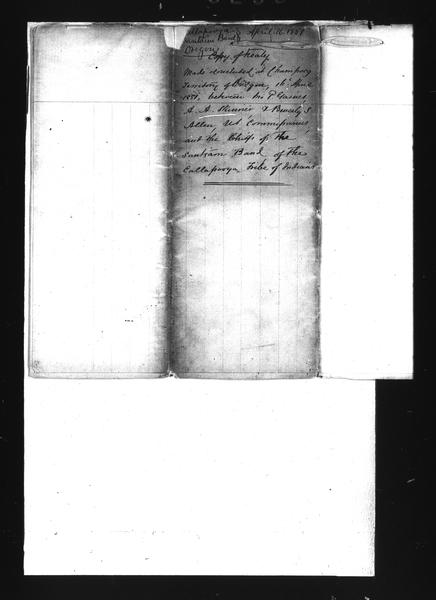 Callapooya April 16 1851
Santiam Band
Oregon
Copy of Treaty
Made & concluded at Champoeg
Territory of Oregon, 16th April
1851, between Jno P Gaines,
A. A. Skinner & Beverly S.
Allen, U.S. Commissioners,
and the Chiefs of the
Santiam Band of the
Callapooya Tribe of Indians